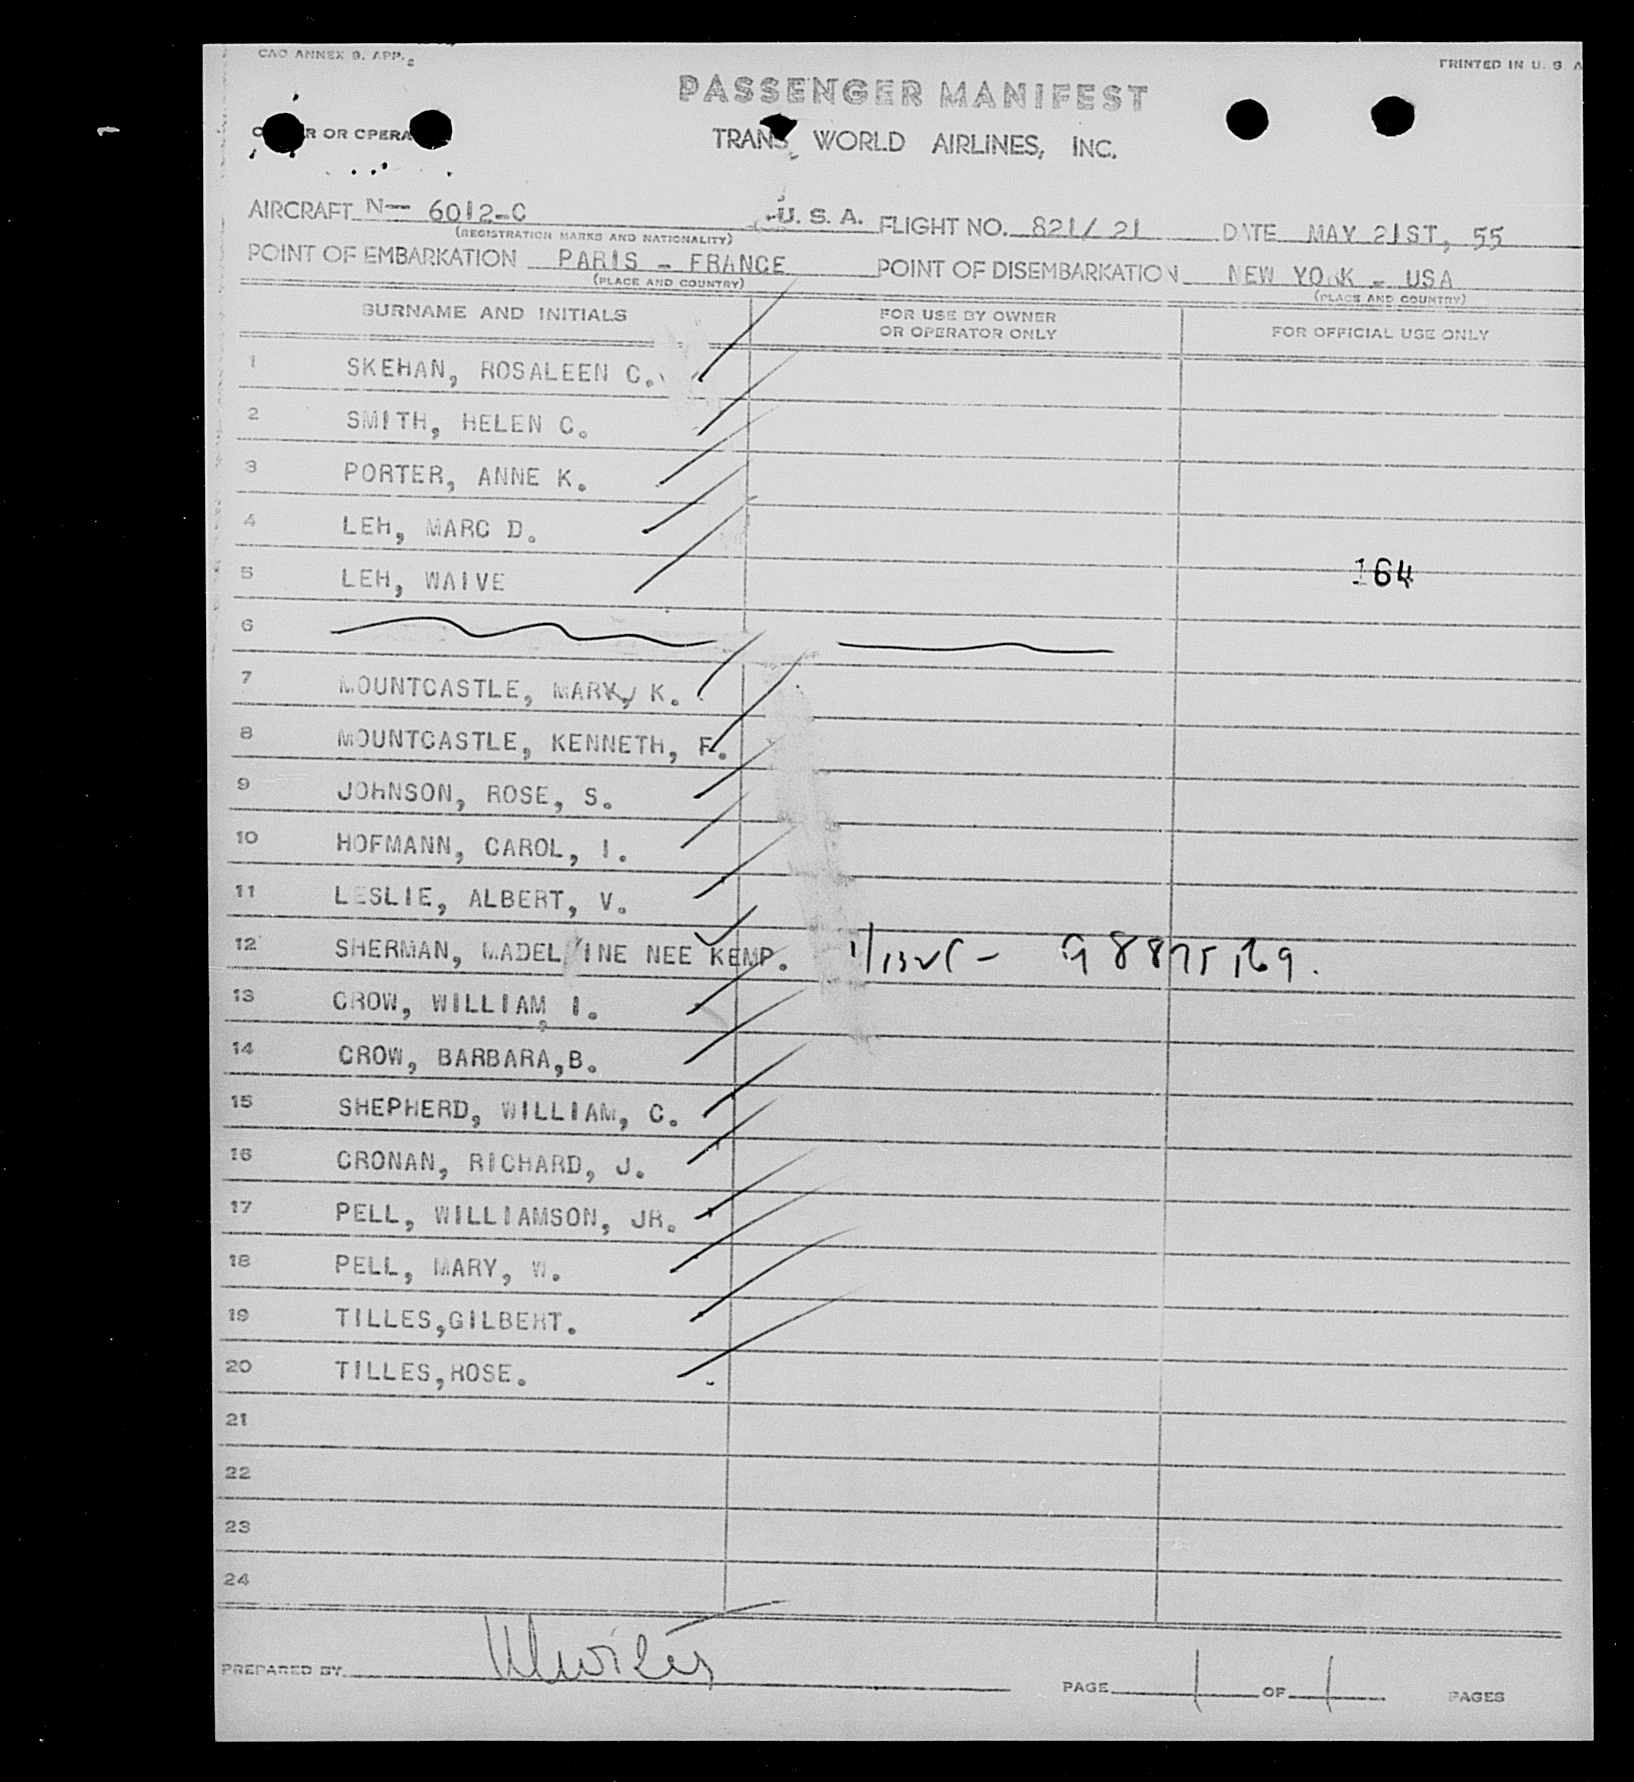 CAO ANNEX 9. APP. 2
PRINTED IN U. S. A
PASSENGER MANIFEST
R OR OPERA
TRANS WORLD AIRLINES, INC.
AIRCRAFT N— 6012-C U. S. A. FLIGHT NO. 821/ 21 DATE MAY 21ST, 55
(REGISTRATION MARKS AND NATIONALITY)
POINT OF EMBARKATION PARIS - FRANCE POINT OF DISEMBARKATION NEW YORK - USA
(PLACE AND COUNTRY) (PLACE AND COUNTRY)
SURNAME AND INITIALS FOR USE BY OWNER OR OPERATOR ONLY FOR OFFICIAL USE ONLY
1 SKEHAN, ROSALEEN C.
2 SMITH, HELEN C.
3 PORTER, ANNE K.
4 LEH, MARC D.
5 LEH, WAIVE 164
6
7 MOUNTCASTLE, MARY, K.
8 MOUNTCASTLE, KENNETH, F.
9 JOHNSON, ROSE, S.
10 HOFMANN, CAROL, I.
11 LESLIE, ALBERT, V.
12 SHERMAN, MADEL INE NEE KEMP.
13 CROW, WILLIAM, I.
14 CROW, BARBARA,B.
15 SHEPHERD, WILLIAM, C.
16 CRONAN, RICHARD, J.
17 PELL, WILLIAMSON, JR.
18 PELL, MARY, W.
19 TILLES,GILBERT.
20 TILLES,ROSE.
21
22
23
24
PREPARED BY PAGE 1 OF 1 PAGES